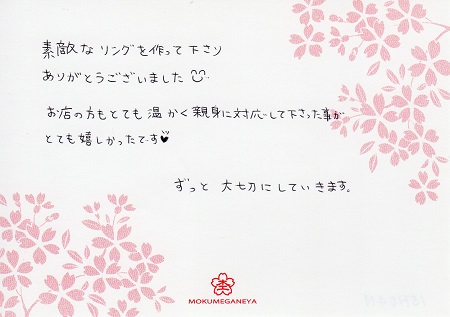 素敵なリングを作って下さり
ありがとうございました
お店の方もとても温かく親身に対応して下さった事が
とても嬉しかったです♥
ずっと大切にしていきます。
MOKUMEGANEYA